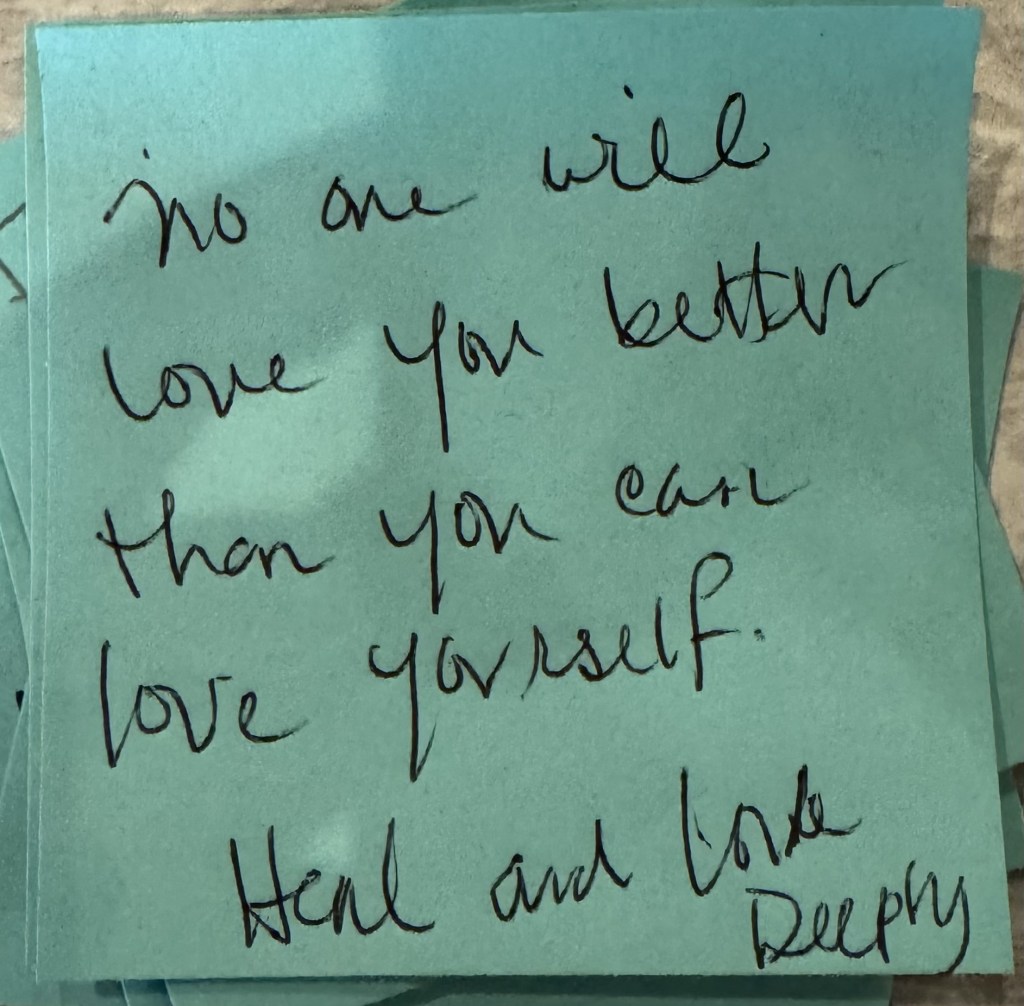 no one will
love you better
than you can
love yourself.
Heal and love
Deeply